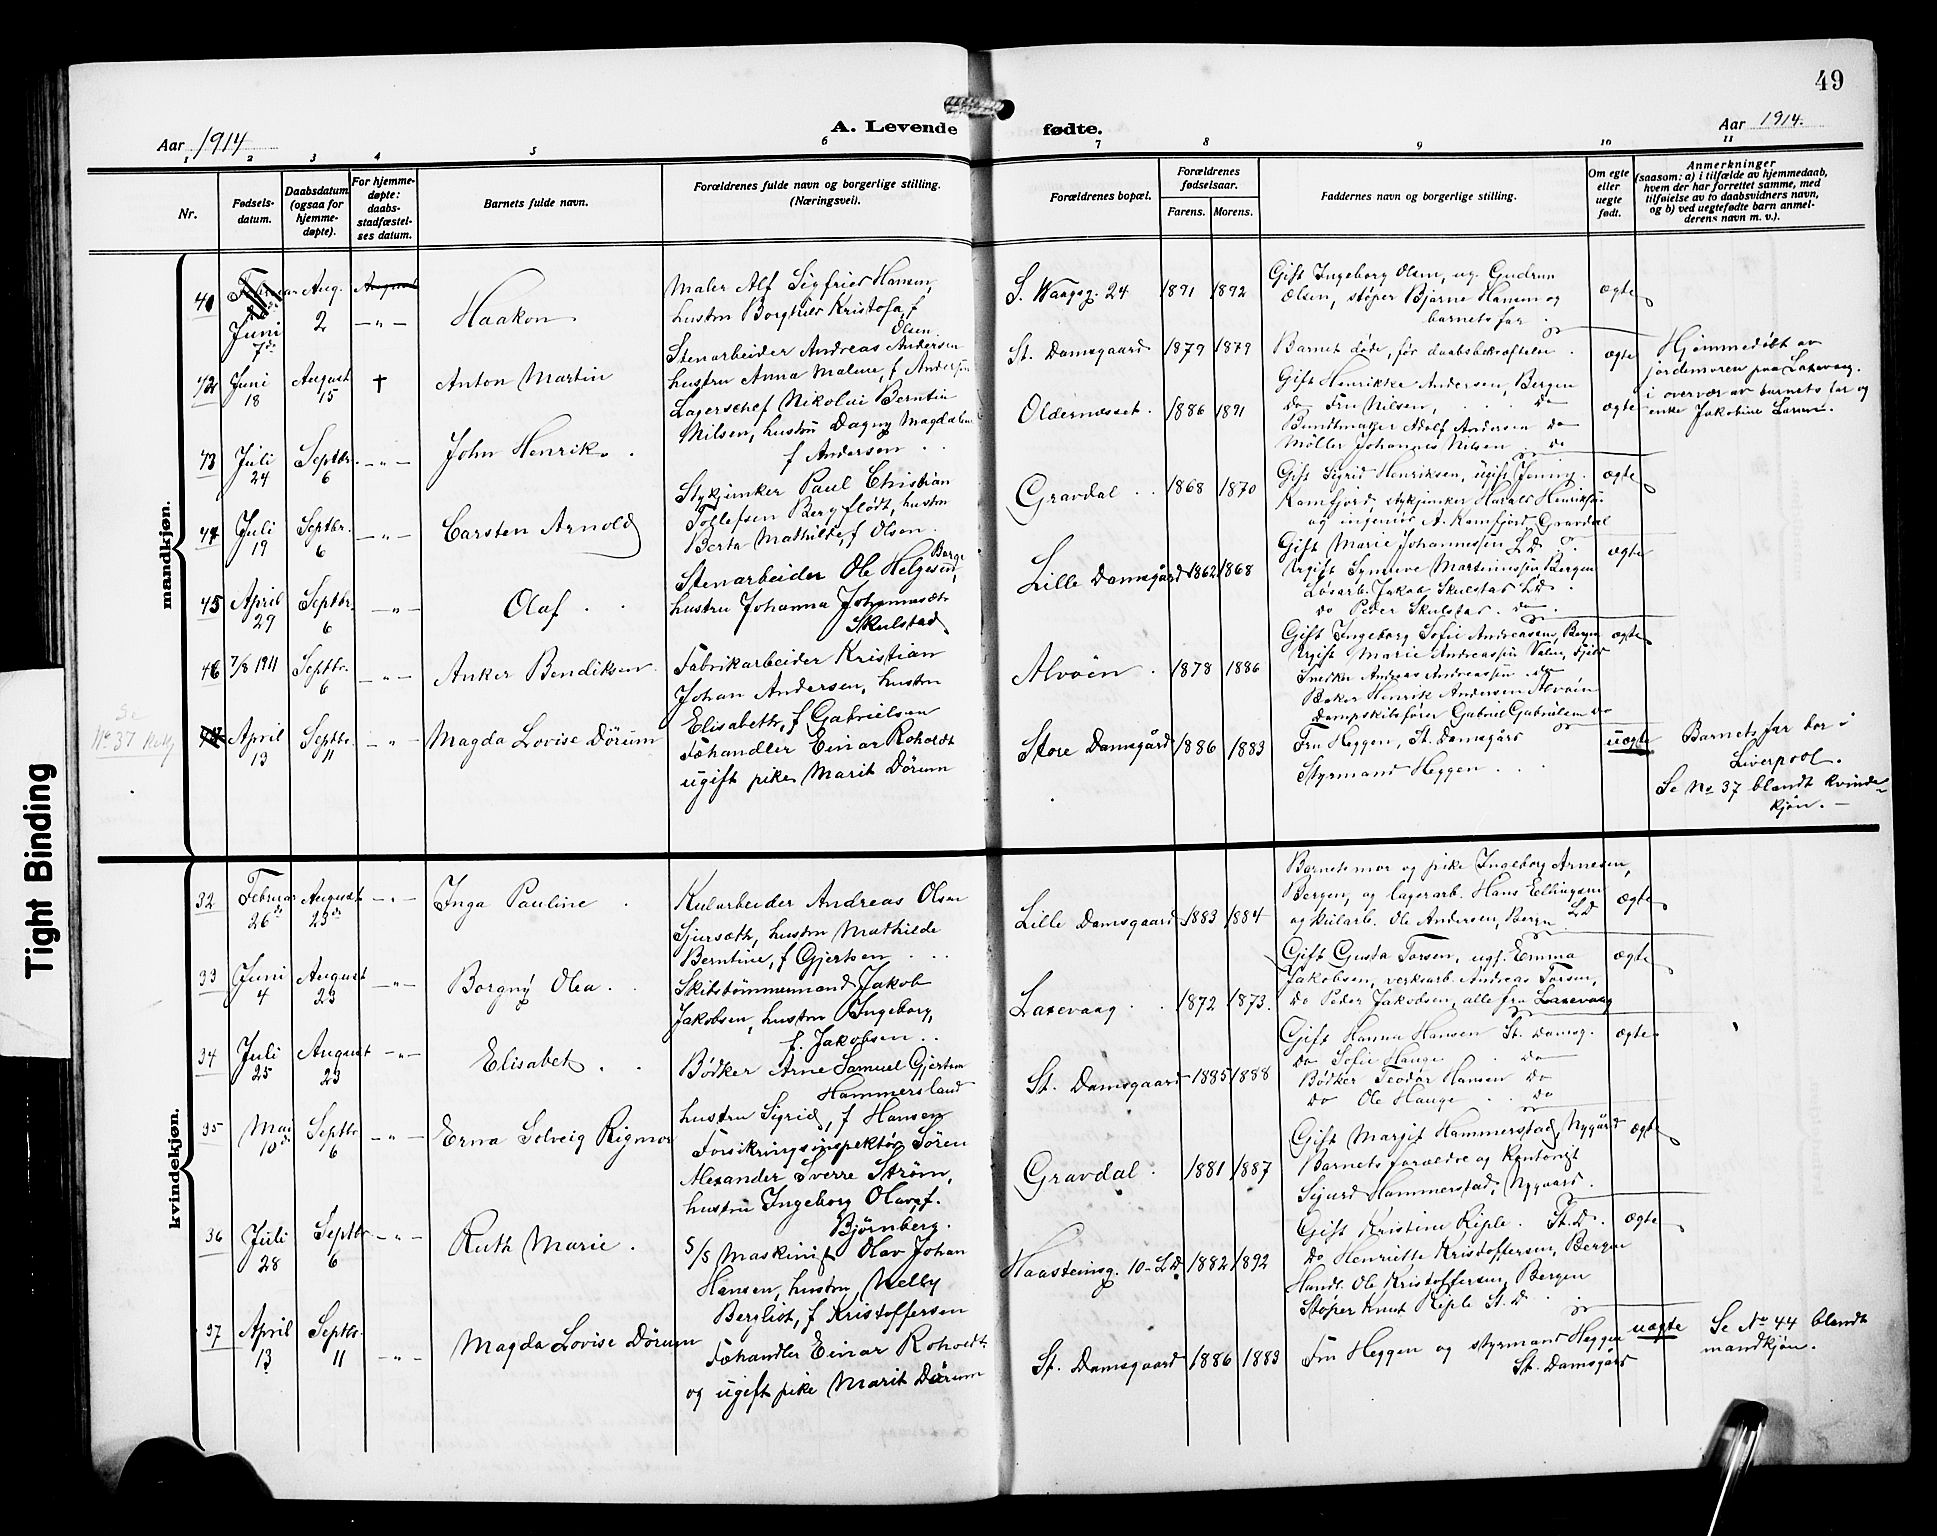 49
Aar 1914
A. Levende fødte.
Aar 1914.
1 2 3 4 5 6 7 8 9 10 11
Nr.
Fødsels-
datum.
Daabsdatum
(ogsaa for
hjemme-
døpte).
For hjemme-
døpte:
daabs-
stadfæstel-
ses datum.
Barnets fulde navn.
Forældrenes fulde navn og borgerlige stilling.
(Næringsvei).
Forældrenes bopæl.
Forældrenes
fødselsaar.
Farens. Morens.
Faddernes navn og borgerlige stilling.
Om egte
eller
uegte
født.
Anmerkninger
(saasom: a) i tilfælde av hjemmedaab,
hvem der har forrettet samme, med
tilføielse av to daabsvidners navn,
og b) ved uegtefødte barn anmel-
derens navn m. v.).
mandkjøn.
41
Februar
Juni
7de
Aug.
2
August
— " —
Haakon
Maler Alf Sigfried Hansen,
hustru Borghild Kristofa, f
Olsen.
S. Waagsg. 24
1891 1892
Gift Ingeborg Olsen, ug. Gudrun
Olsen, støper Bjarne Hansen og
barnets far.
ægte
42
Juni
18
August
15
†
Anton Martin
Stenarbeider Andreas Andersen
hustru Anna Malene, f Andersen
St. Damsgaard
1879 1879
Barnet døde, før daabsbekræftelsen.
ægte
Hjemmedøbt av
jordemoren paa Laxevaag.
i overvær av barnets far og
enke Jakobine Larsen.
43
Juli
24
Septbr.
6
— " —
John Henrik.
Lagerschef Nikolai Berntin
Nilsen, hustru Dagny Magdalene
f Andersen
Oldernæsset.
1886 1891
Gift Henrikke Andersen, Bergen
do Fru Nilsen, do
Bundtmaker Adolf Andersen do
Møller Johannes Nilsen do
ægte
44
Juli
19
Septbr.
6
— " —
Carsten Arnold
Stykjunker Paul Christian
Tollefsen Bergflødt, hustru
Berta Mathilde, f Olsen.
Gravdal
1868 1870
Gift Sigrid Henriksen, ugift Jenny
Kamfjord, stykjunker Harald Henriksen
og ingeniør A. Kamfjord, Gravdal
ægte
45
April
29
Septbr.
6
— " —
Olaf
Stenarbeider Ole Helgesen Berge,
hustru Johanna Johannesdtr
Skulstad
Lille Damsgård
1862 1868
Gift Marie Johannessen LD
Ugift Synneve Martinussen Bergen
Løsarb. Jakob Skulstad LD.
do Peder Skulstad. do
ægte
46
7/8 1911
Septbr.
6
— " —
Anker Bendiksen
Fabrikarbeider Kristian
Johan Andersen, hustru
Elisabeth, f Gabrielsen
Alvøen
1878 1886
Gift Ingeborg Sofie Andreassen, Bergen
Ugift Marie Andreassen
Snedker Andreas Andreassen do
Baker Henrik Andersen Alvøen
Dampskibsfører Gabriel Gabrielsen do
ægte
Se
No 37
April
13
Septbr.
11
— " —
Magda Lovise Dörum
Fæhandler Einar Roholdt
ugift pike Marit Dörum
Store Damsgård
1886 1883
Fru Heggen, St. Damsgård
Styrmand Heggen.
uægte
Barnets far bor i
Liverpool.
Se No 37 blandt kvinde-
kjøn. —
kvindekjøn.
32
Februar
26de
August
23de
— " —
Inga Pauline
Kularbeider Andreas Olsen
Sjursæth, hustru Mathilde
Berntine, f Gjertsen
Lille Damsgaard
1883 1884
Barnets mor og pike Ingeborg Arnesen,
Bergen, og lagerarb. Hans Ellingsen LD
og kularb. Ole Andersen, Bergen
ægte
33
Juni
4
August
23
— " —
Borgny Olea
Skibstømmermand Jakob
Jakobsen, hustru Ingeborg,
f. Jakobsen
Laxevaag
1872 1873.
Gift Gusta Torsen, ugf. Emma
Jakobsen, verksarb. Andreas Torsen,
do Peder Jakobsen, alle fra Laxevaag
ægte
34
Juli
25
August
23
— " —
Elisabet
Bødker Arne Samuel Gjertsen
Hammersland
hustru Sigrid, f Hansen
St. Damsgaard
1885 1888
Gift Hanna Hansen St. Damsg.
do Sofie Hauge do
Bødker Teodor Hansen do
do Ole Hauge do
ægte
35
Mai
10de
Septbr.
6
— " —
Erna Solveig Rigmor
Forsikringsinspektør Sören
Alexander Sverre Ström,
hustru Ingeborg Olava, f.
Björnberg.
Gravdal
1881 1887
Gift Margit Hammerstad, Nygård
Barnets forældre og Kontorist
Sigurd Hammerstad, Nygaard.
ægte
36
Juli
28
Septbr.
6
— " —
Ruth Marie
S/S Maskinist Olav Johan
Hansen, hustru, Nelly
Bergliot, f Kristoffersen
Haasteinsg. 10 - LD.
1882 1892
Gift Kristine Riple. St. D.
do Henriette Kristoffersen, Bergen
Handl. Ole Kristoffersen, Bergen
Støper Knut Riple St. D
ægte
37
April
13
Septbr.
11
— " —
Magda Lovise Dörum
Fæhandler Einar Roholdt
og ugift pike Marit Dörum
St. Damsgaard
1886 1883
Fru Heggen og styrmand Heggen
St. Damsgård
uægte
Se No 44 blandt
mandkjøn.
Tight Binding